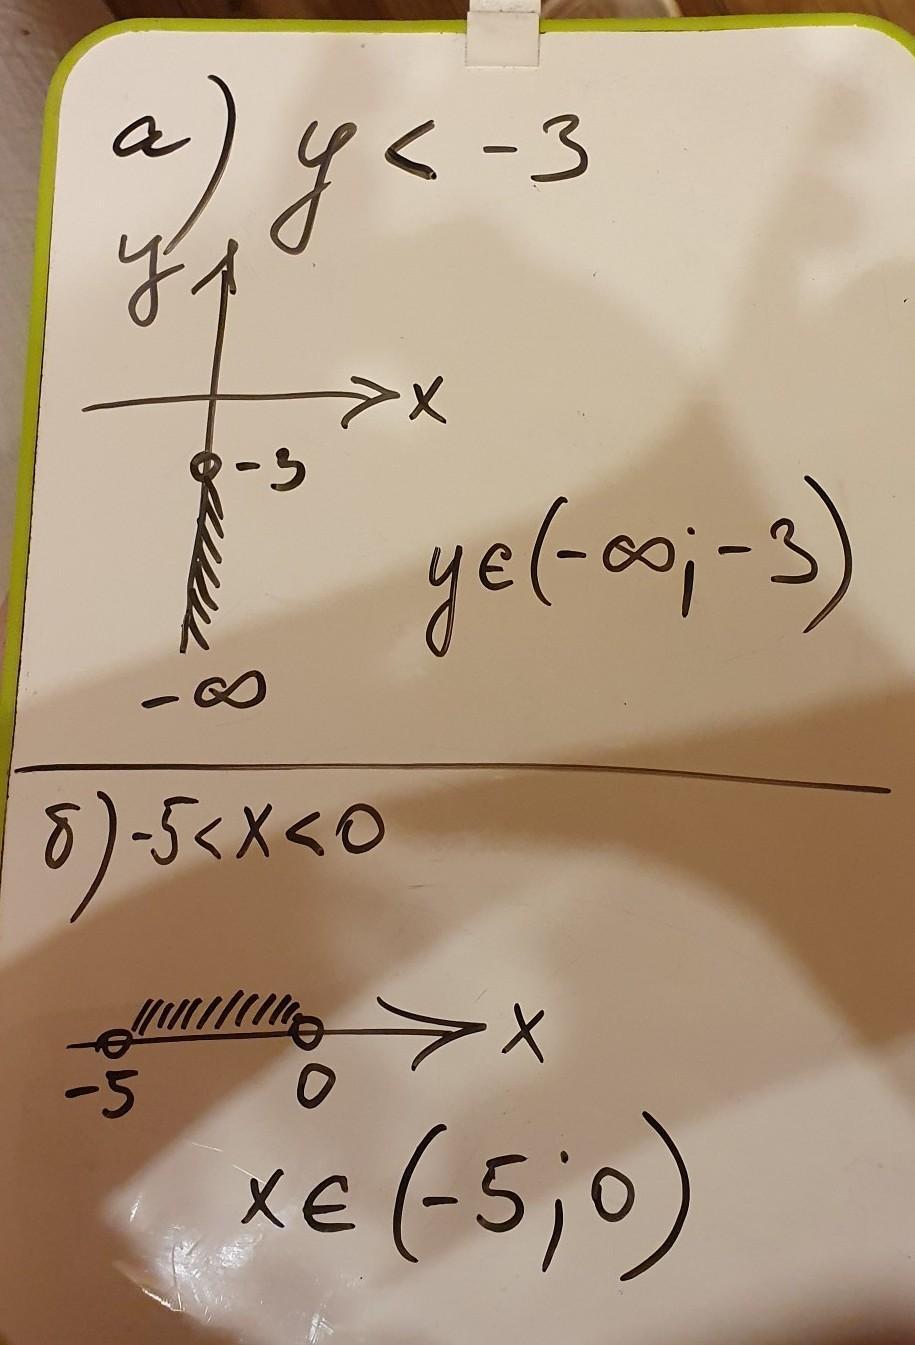 а) y < -3
y
x
-3
y∈(-∞;-3)
-∞
б) -5<x<0
x
-5 0
x∈(-5;0)